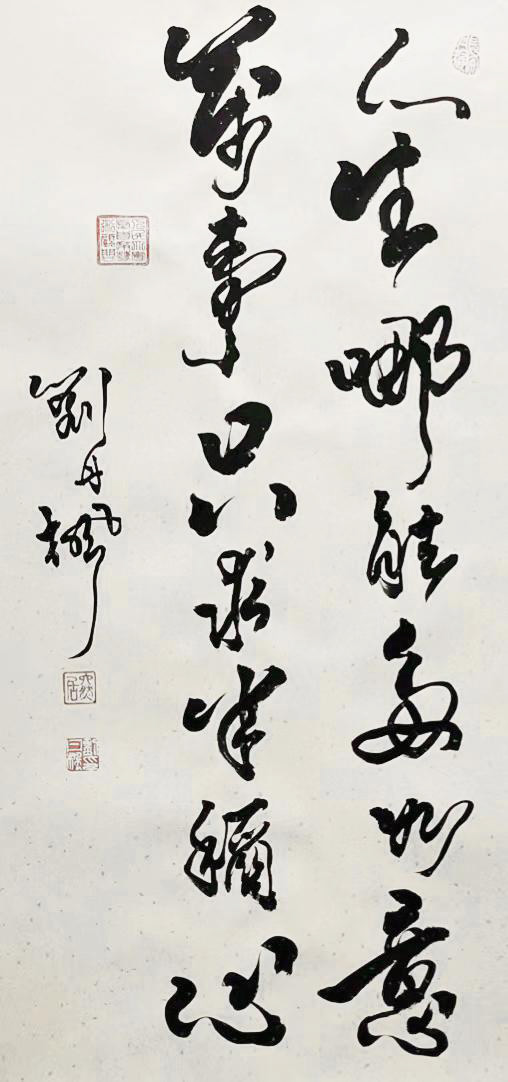 人生哪能多如意
萬事只求半稱心
劉丹楓